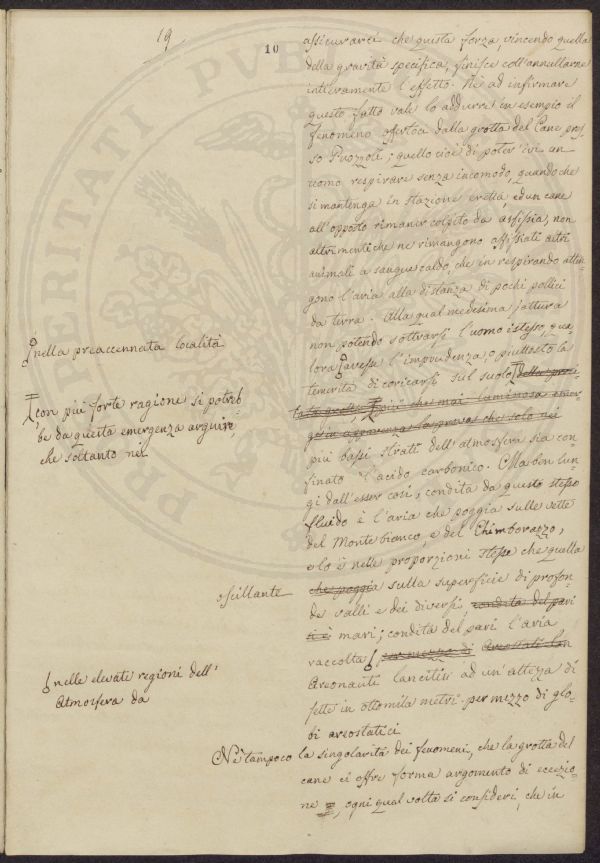 19
10
assicurarci che questa forza, vincendo quella
della gravità specifica, finisce coll'annullarne
intieramente l'effetto. Nè ad infirmare
questo fatto vale lo addurre in esempio il
fenomeno offertoci dalla grotta del Cane pres-
so Puozzoli; quello cioè di poter ivi un
uomo respirare senza incomodo, quando che
si mantenga in stazione eretta, ed un cane
all'opposto rimaner colpito da asfissia, non
altrimenti che ne rimangono asfissiati altri
animali a sangue caldo, che in respirando attin-
gono l'aria alla distanza di pochi pollici
da terra. Alla qual medesima jattura
non potendo sottrarsi l'uomo istesso, qua-
lora avesse l'impudenza, o piuttosto la
nella preaccennata località
temerità di coricarsi sul suolo
con più forte ragione si potreb-
be da questa emergenza arguire,
che soltanto nei
più che mai luminosa emer-
che solo nei
più bassi strati dell'atmosfera sia con
finato l'acido carbonico. Ma ben lun-
gi dall'esser così, condita da questo stesso
fluido è l'aria che poggia sulle vette
del Monte bianco, e del Chimborazzo,
e lo è nelle proporzioni stesse che quella
oscillante
che poggia sulla superficie di profon-
de valli e dei diversi, condita del pari
mari; condita del pari l'aria
raccolta, per mezzo di
nelle elevate regioni dell'
Atmosfera da
Areonauti lancitisi ad un'altezza di
sette in ottomila metri per mezzo di glo-
bi areostatici
Nè tampoco la singolarità dei fenomeni, che la grotta del
cane ci offre forma argomento di eccezio-
ne, ogni qual volta si consideri, che in